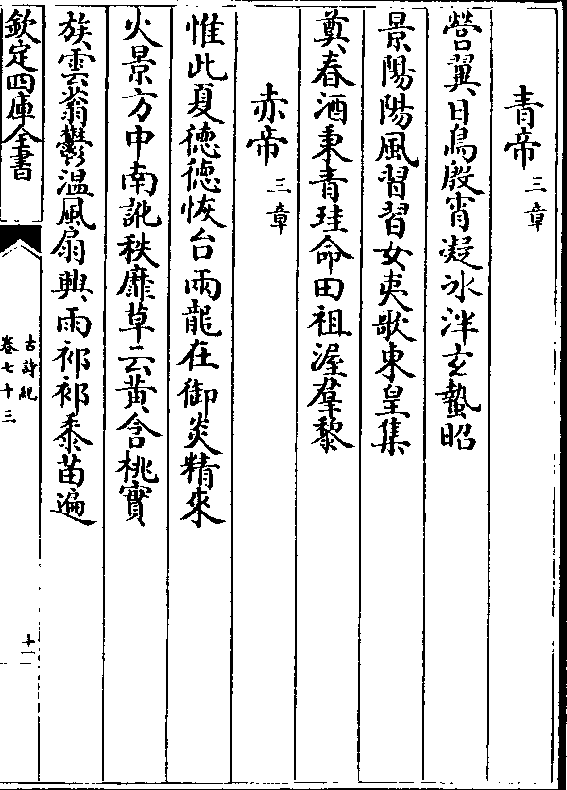 青帝三章
營翼日鳥殷宵凝冰泮玄蟄昭
景陽陽風習習女夷歌東皇集
奠春酒秉青珪命田祖渥羣黎
赤帝三章
惟此夏徳徳恢台兩龍在御炎精來
火景方中南訛秩靡草云黄含桃實
族雲蓊鬱温風扇興雨祁祁黍苗遍
欽定四庫全書
古詩紀
卷七十三
十一